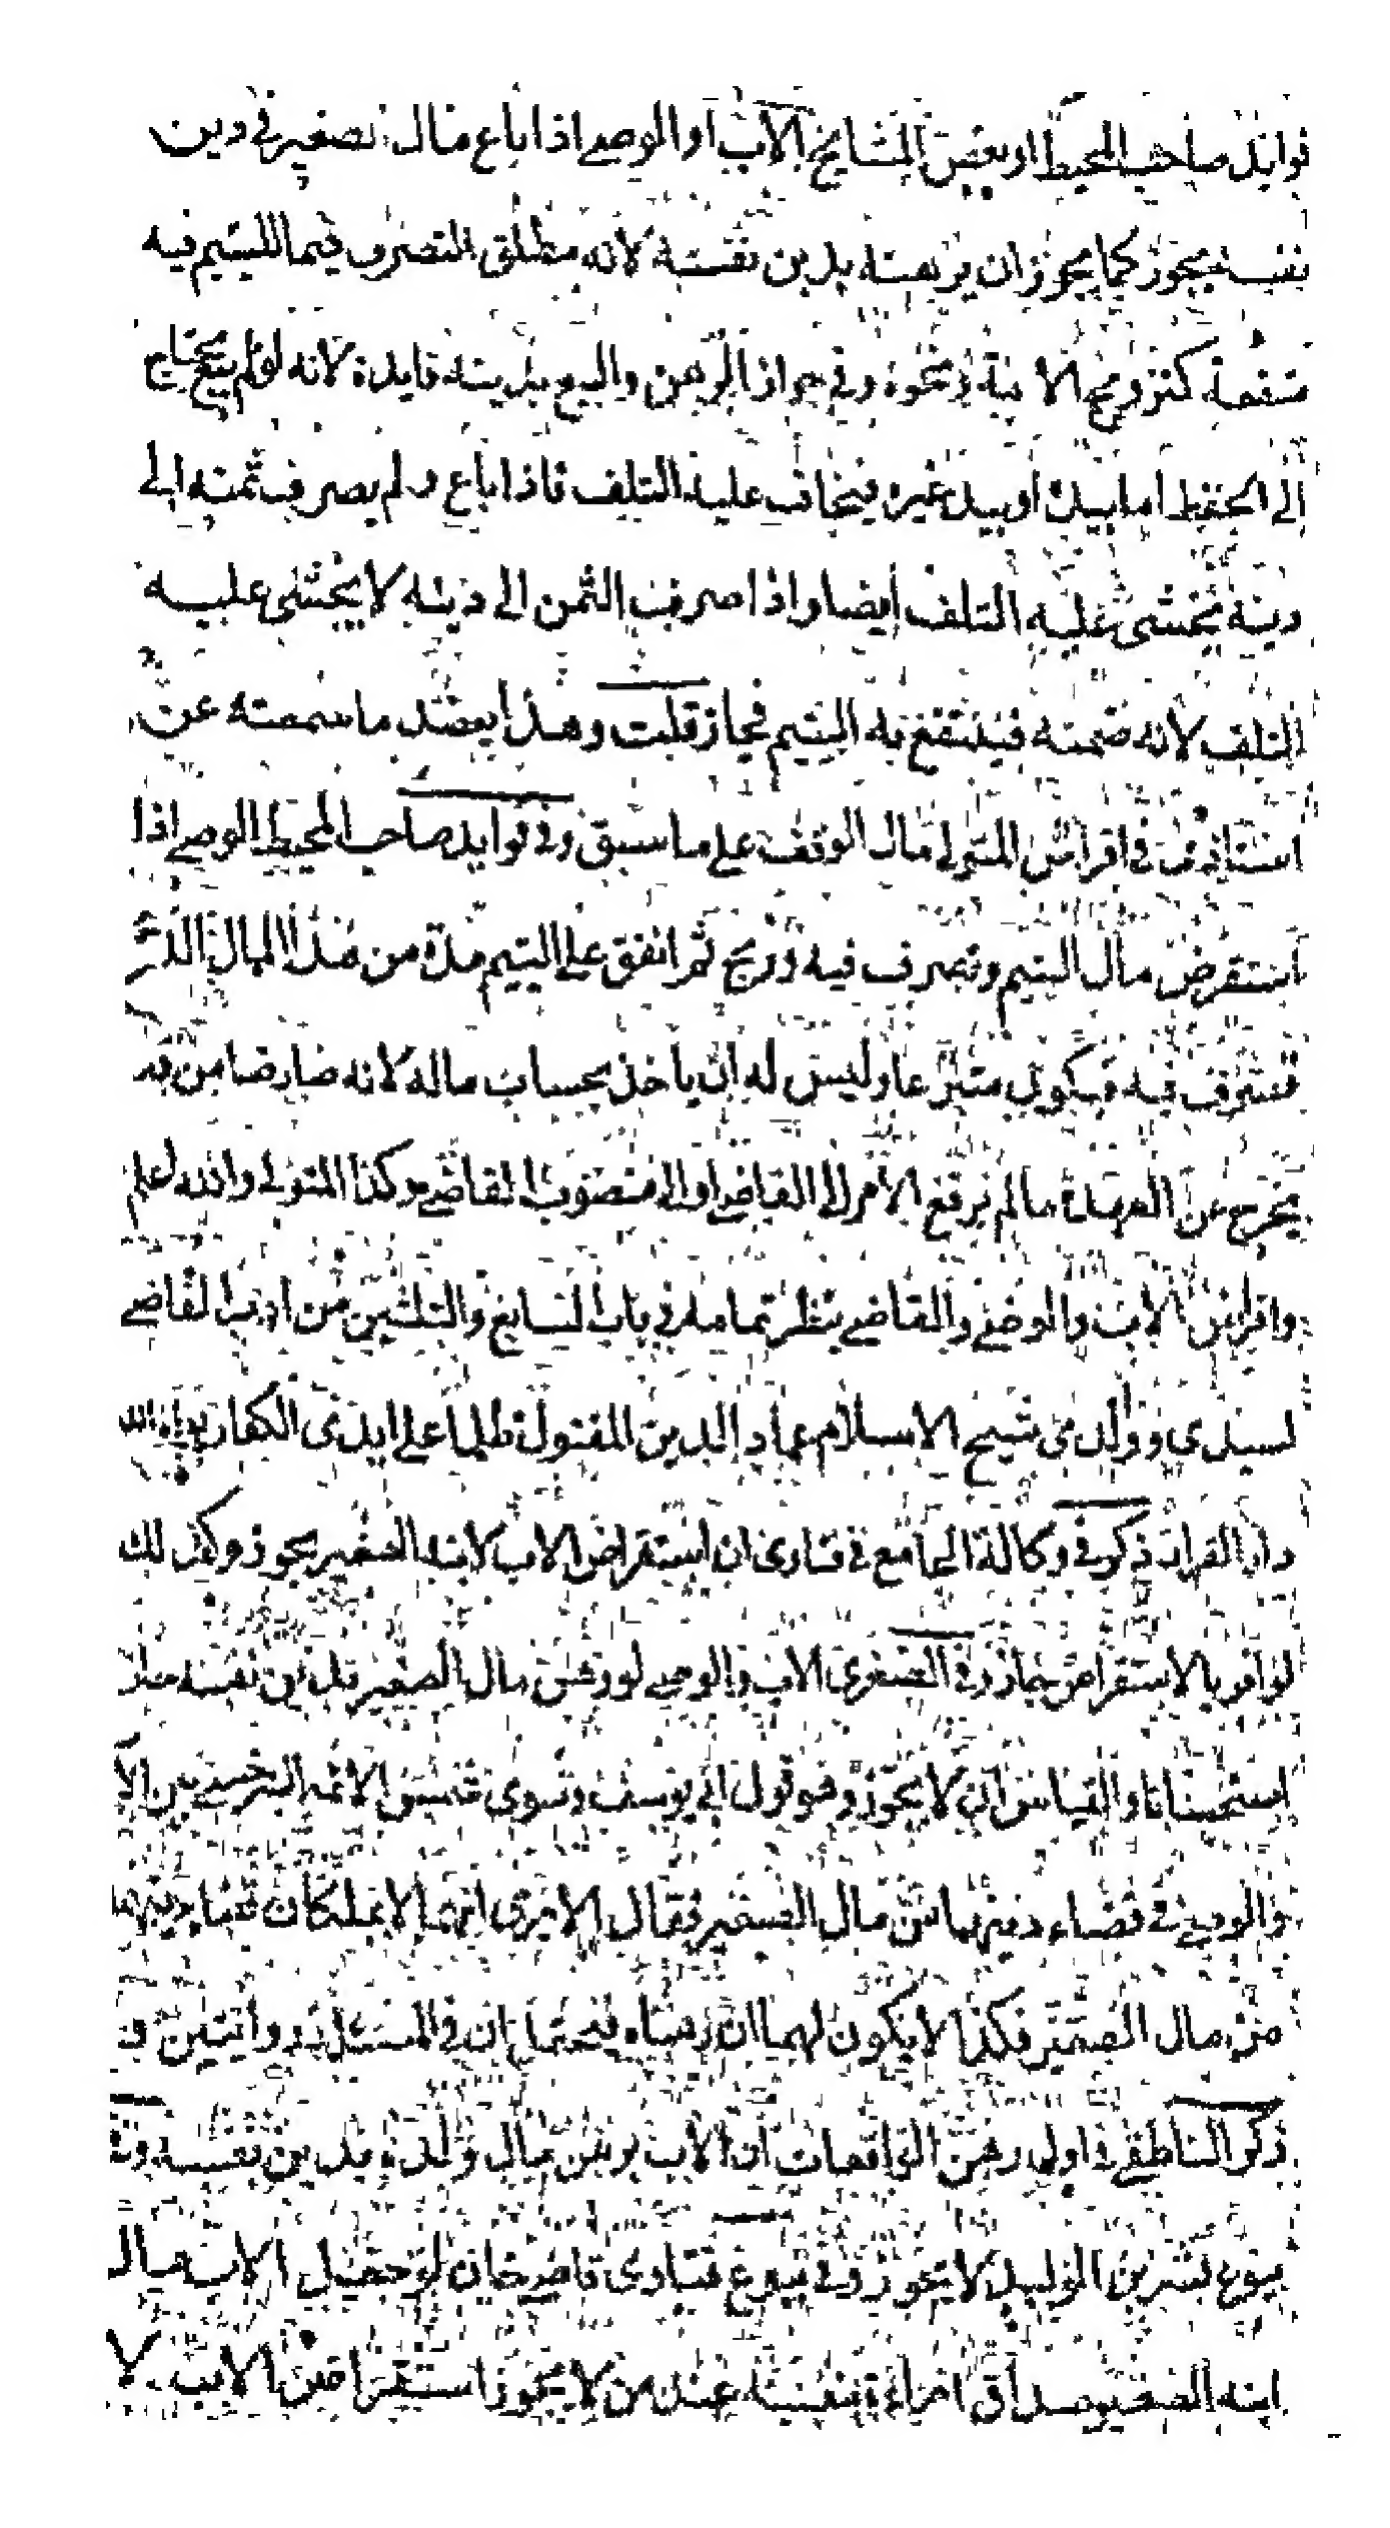 فوايد صاحب المحيط او بعض المشايخ الاب او الوصي اذا باع مال الصغير في دين
نفسه يجوز كما يجوز ان يرهنه بدين نفسه لانه مطلق التصرف فيما لليتيم فيه
منفعة كتزويج الامة ونحوه وفي جواز الرهن والبيع بدينه فايدة لانه لو لم يبع يحتاج
الى الحفظ اما بيده او بيد غيره فيخاف عليه التلف فاذا باع ولم يصرف ثمنه الى
دينه يخشى عليه التلف ايضا واذا صرف الثمن الى دينه لا يخشى عليه
التلف لانه ضمنه فينتفع به اليتيم فجاز قلت وهذا يعضد ما سمعته عن
استاذي في اقراض المتولي مال الوقف على ما سبق وفي فوايد صاحب المحيط الوصي اذا
استقرض مال اليتيم وتصرف فيه وربح ثم انفق على اليتيم مدة من هذا المال الذي
تصرف فيه فيكون متبرعا وليس له ان ياخذ بحساب ماله لانه صار ضامن فلا
يخرج عن العهدة ما لم يرفع الامر الى القاضي او الى منصوب القاضي وكذا المتولي والله اعلم
واقراض الاب والوصي والقاضي ينظر تمامه في باب السابع والثلثين من ادب القاضي
لسيدي ووالدي شيخ الاسلام عماد الدين المقتول ظلما على ايدي الكفار بواه الله
دار القرار ذكر في وكالة الجامع في فتاوى ان استقراض الاب لابنه الصغير يجوز وكذلك
لو اقر بالاستقراض جاز وفي الصغرى الاب والوصي لو رهن مال الصغير بدين نفسه جاز
استحسانا والقياس ان لا يجوز وهو قول ابي يوسف وسوى شمس الائمة السرخسي بين الاب
والوصي في قضاء دينهما من مال الصغير فقال الا يرى انهما لا يملكان قضا دينهما
من مال الصغير فكذا لا يكون لهما ان يرهناه فيحتمل ان في المسئلة روايتين و
ذكر الناطفي في اول رهن الواقعات ان الاب يرهن مال ولده بدين نفسه وفي
بيوع بشر بن الوليد لا يجوز وفي بيوع فتاوى قاضي خان لو جعل الاب مال
ابنه الصغير صداق امراة نفسه عند من لا يجوز استقراض الاب لا